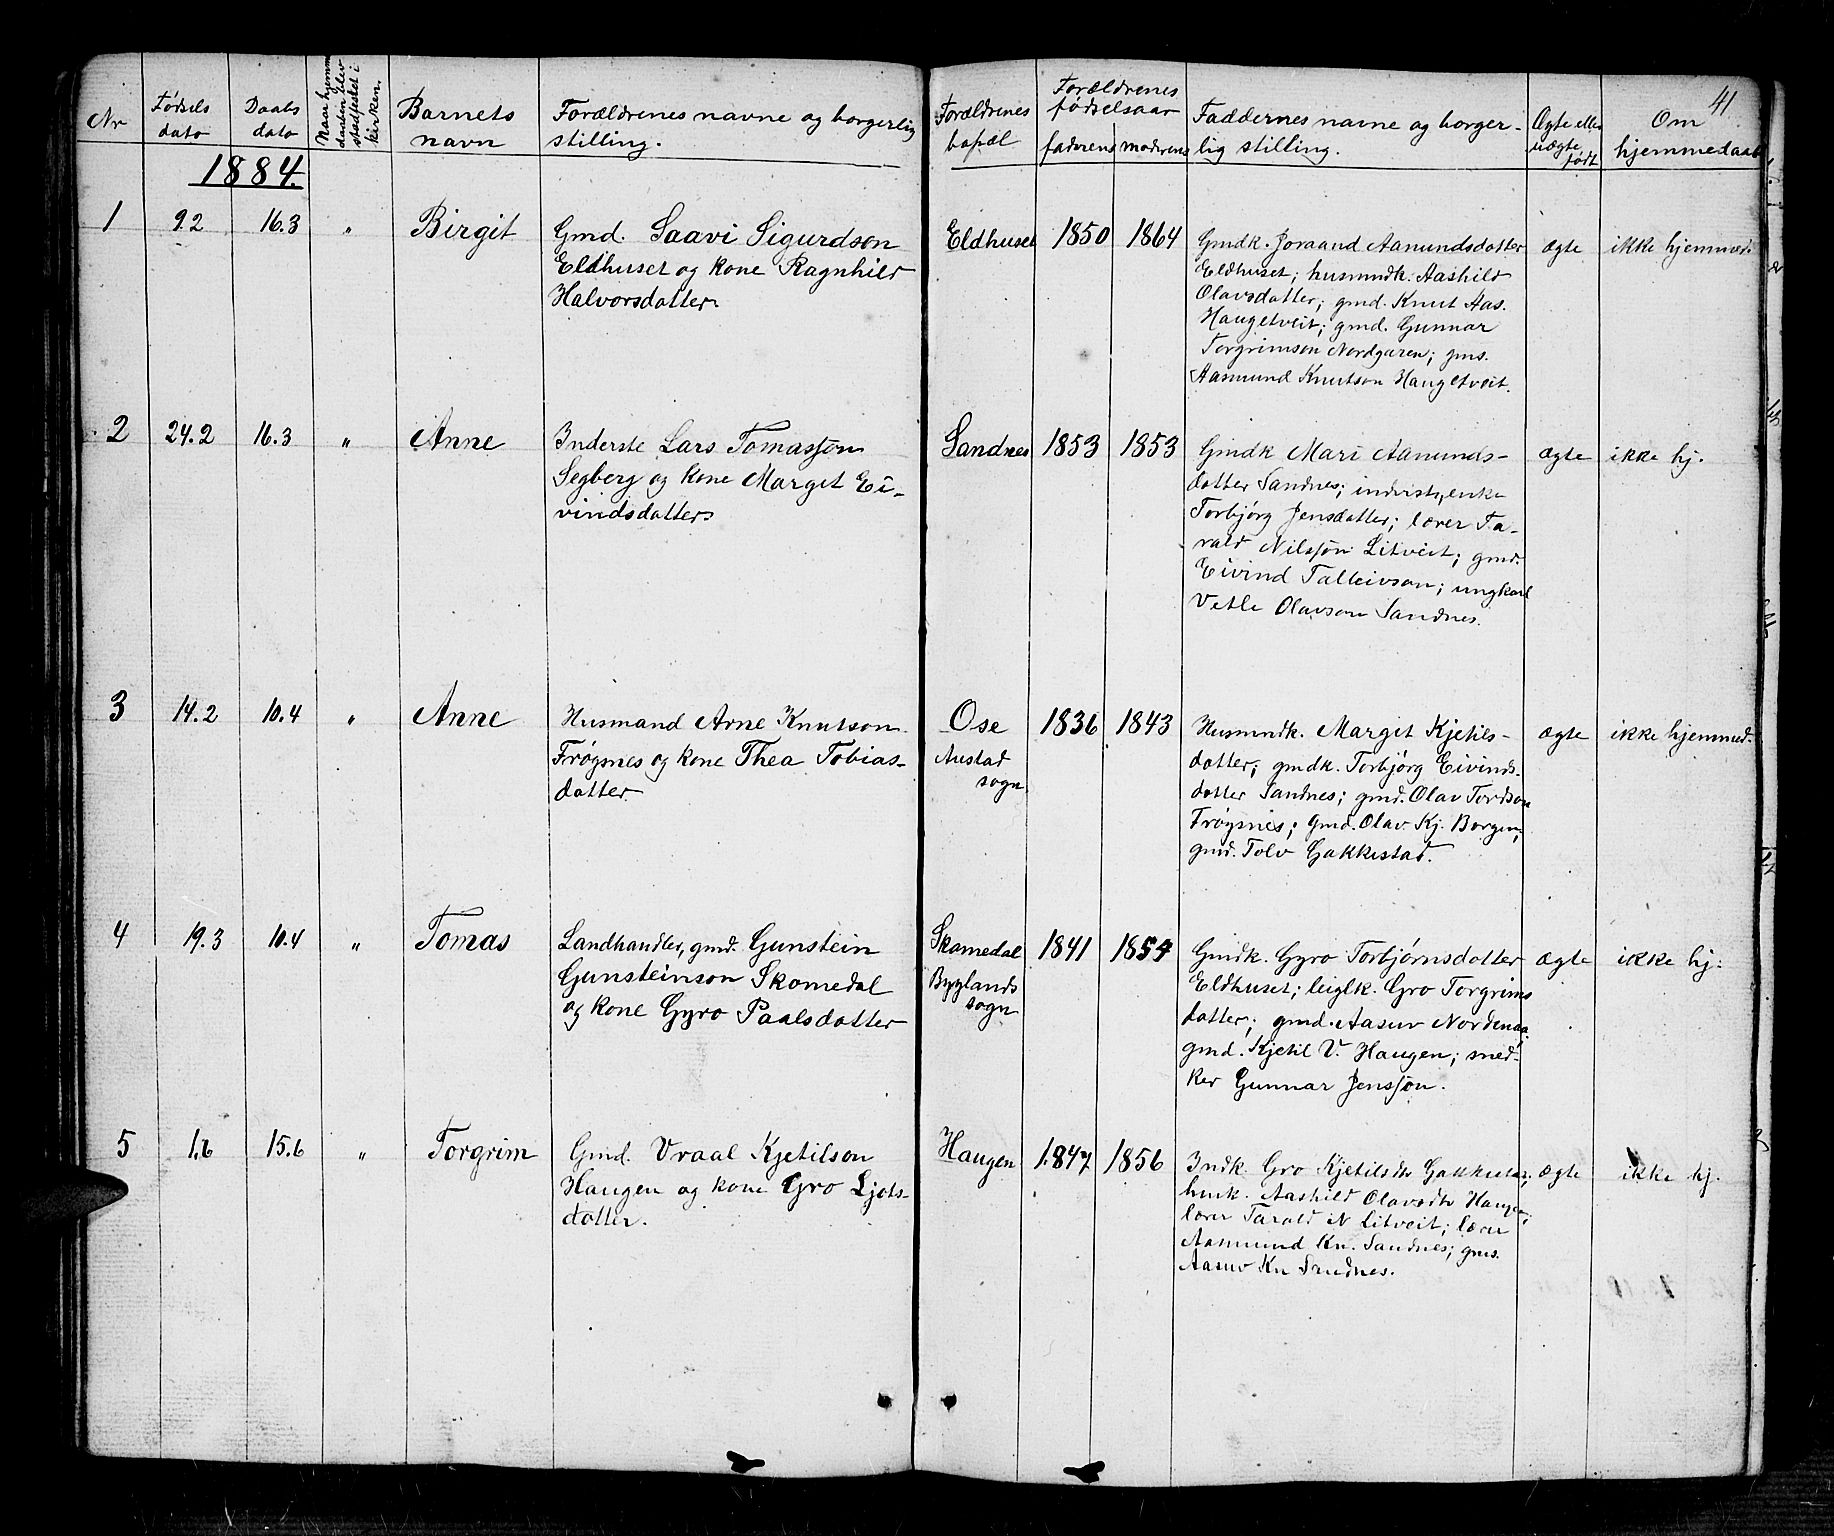 41
Nr
Fødsels dato
Daabs dato
Naar hjemme daaben blev stadfestet i kirken.
Barnets navn
Forældrenes navne og borgerlig stilling.
Forældrenes bopæl
Forældrenes fødselsaar
faderens
moderens
Faddernes navne og borger-
lig stilling.
Ægte eller uægte født
Om hjemmedaab
1884.
1 9.2 16.3 " Birgit
Gmd. Saavi Sigurdson
Eldhuset og kone Ragnhild
Halvorsdatter
Eldhuset 1850 1864
Gmdk. Joraand Aamundsdotter
Eldhuset; husmndk. Aashild
Olavsdotter; gmd. Knut Aas.
Haugetveit; gmd. Gunnar
Torgrimson Nordgaren; gms.
Aasmund Knutson Haugetveit.
ægte ikke hjemmed.
2 24.2 16.3 " Anne
Inderste Lars Tomassøn
Segberg og kone Margit Ei-
vindsdatter
Sandnes 1853 1853
Gmdk Mari Aamunds-
dotter Sandnes; indrists, enke
Torbjørg Jensdatter; lærer Ta-
rald Nilssøn Litveit; gmd.
Eivind Talleivson; ungkarl
Vetle Olavson Sandnes.
ægte ikke hj.
3 14.2 10.4 " Anne
Husmand Arne Knutson
Frøysnes og kone Thea Tobias-
datter.
Ose
Austad
sogn
1836 1843
Husmndk. Margit Kjetils-
datter; gmdk. Torbjørg Eivinds-
dotter Sandnes; gmd. Olav Tordson
Frøysnes; Gmd. Olav Kj. Borgen;
gmd. Tolv Gakkestad.
ægte ikke hjemmed.
4 19.3 10.4 " Tomas
Landhandler, gmd. Gunstein
Gunsteinson Skomedal
og kone Gyro Paalsdotter
Skomedal
Byglands
sogn
1841 1854
Gmdk. Gyro Torbjørnsdotter
Eldhuset; leiglk. Gro Torgrims
datter; gmd. Aasuv Nordenaa;
gmd. Kjetil V. Haugen; sned-
ker Gunnar Jenssøn.
ægte ikke hj.
5 1.6 15.6 " Torgrim
Gmd. Vraal Kjetilson
Haugen og kone Gro Ljots-
datter.
Haugen 1847 1856
Indk. Gro Kjetilsdtr Gakkestad;
husk. Aashild Olavsdtr Haugen;
lærer Tarald N Litveit; lærer
Aasmund Kn. Sandnes; gms.
Aasuv Kn Sandnes.
ægte ikke hj.